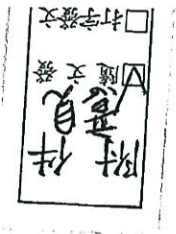 附件
意見
☑隨文發
□打字發文